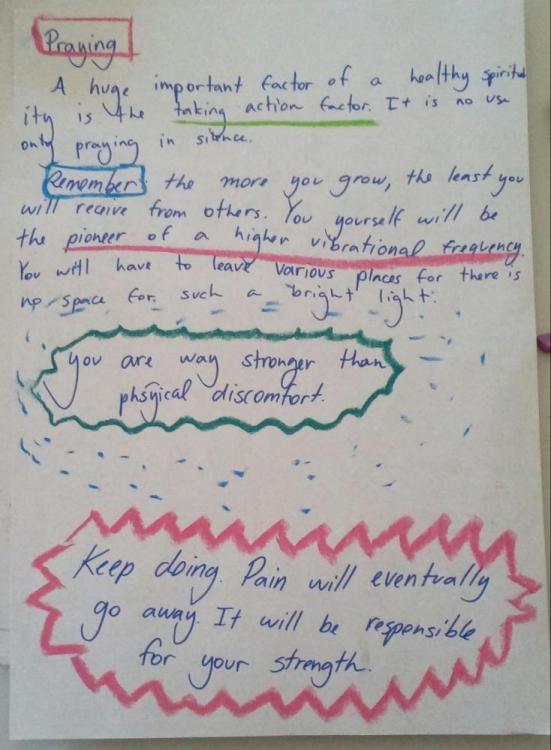 Praying
A huge important factor of a healthy spiritual
ity is the taking action factor. It is no use
only praying in silence.
Remember the more you grow, the least you
will receive from others. You yourself will be
the pioneer of a higher vibrational frequency.
You will have to leave various places for there is
no space for such a bright light.
you are way stronger than
phsyical discomfort.
Keep doing. Pain will eventually
go away. It will be responsible
for your strength.